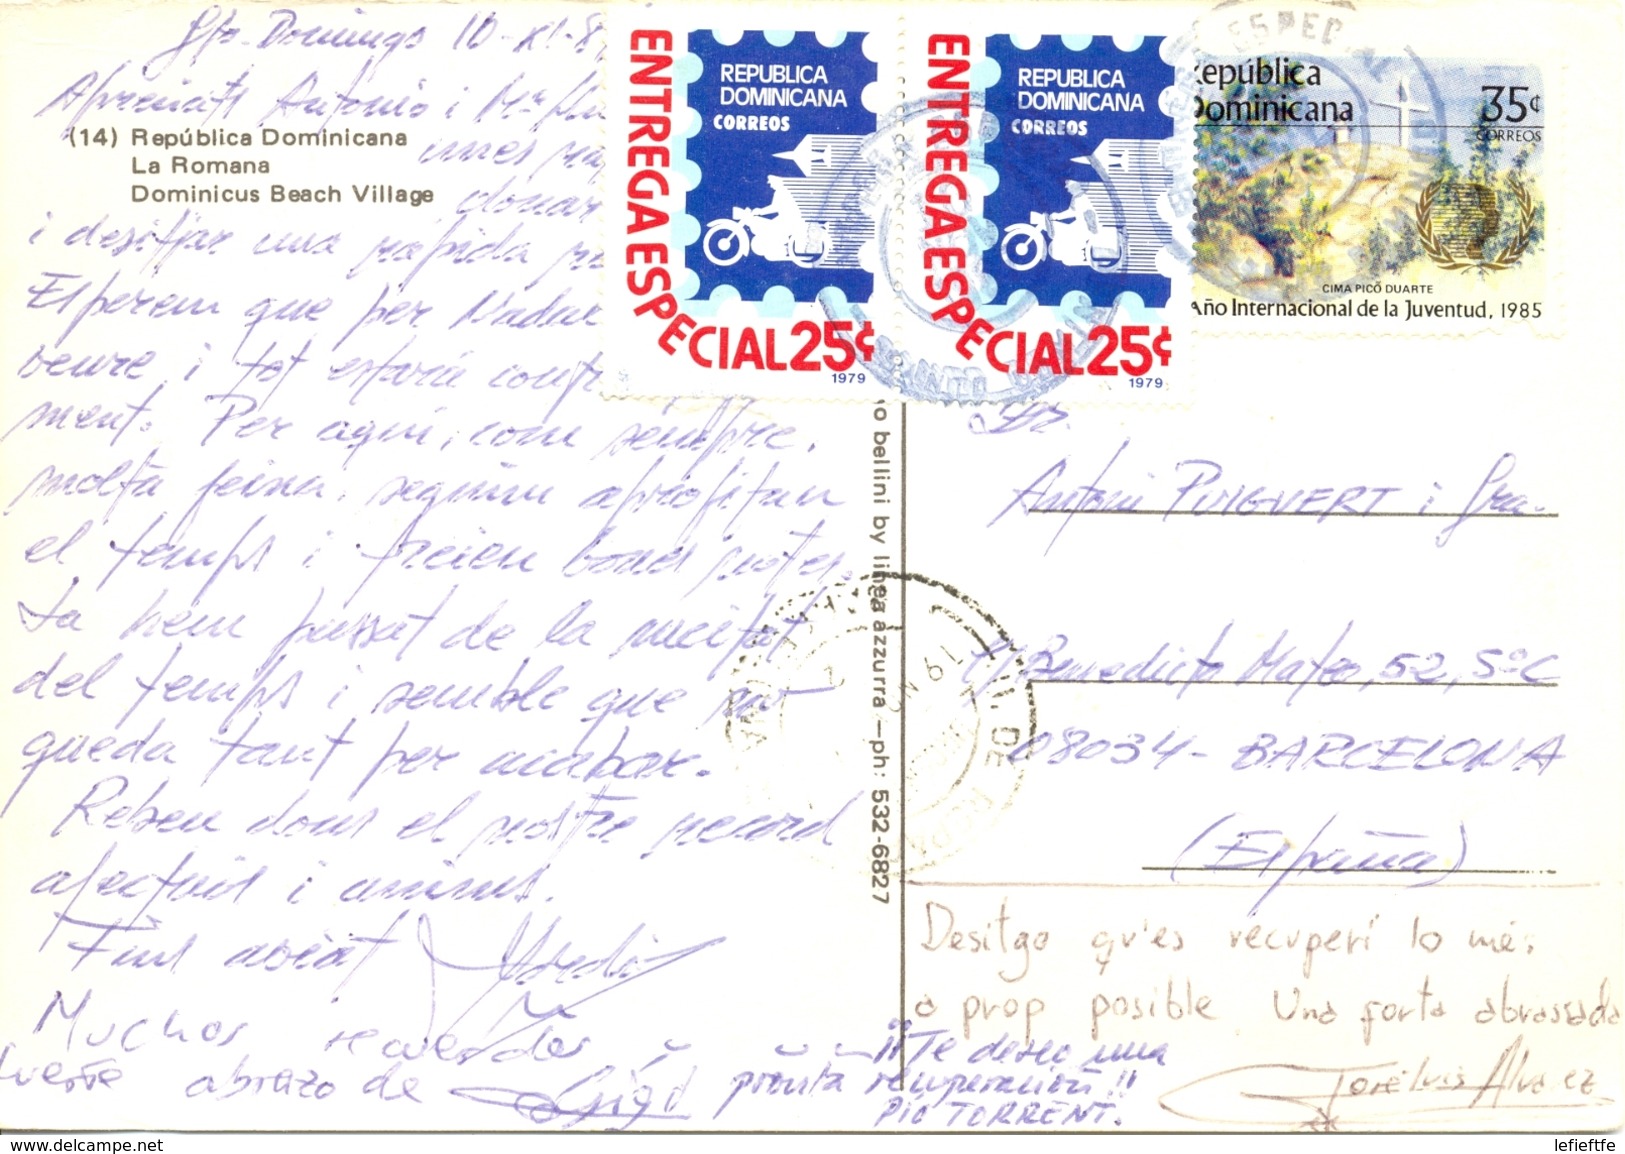 Sto. Domingo 10-XI-8
Apreciats Antonio i Mª
(14) República Dominicana
La Romana
Dominicus Beach Village
unes
donar
i desitjar una rapida
Esperem que per Nadal
beure i tot estaria
ment. Per aquí, com sempre,
molta feina, seguim aprofitan
el temps i bones notes.
Ja hem passat de la meitat
del temps i sembla que no
queda tant per acabar.
Reben dons el nostre record
afectuós i anims.
Fins aviat
Muchos recuerdos
fuerte abrazo de
¡¡Te deseo una
pronta recuperación!!
PIO TORRENT.
ENTREGA ESPECIAL 25¢
REPUBLICA
DOMINICANA
CORREOS
1979
ENTREGA ESPECIAL 25¢
REPUBLICA
DOMINICANA
CORREOS
1979
República
Dominicana
35¢
CORREOS
CIMA PICO DUARTE
Año Internacional de la Juventud, 1985
bellini by linea azzurra — ph: 532-6827
Sr.
Antoni PUIGVERT i Sra.
c/ Benedicto Mateo, 52, 5º C
08034 - BARCELONA
(España)
Desitgo qu'es recuperi lo més
a prop posible Una forta abrassada
José Luis Alvarez
lefieftfe